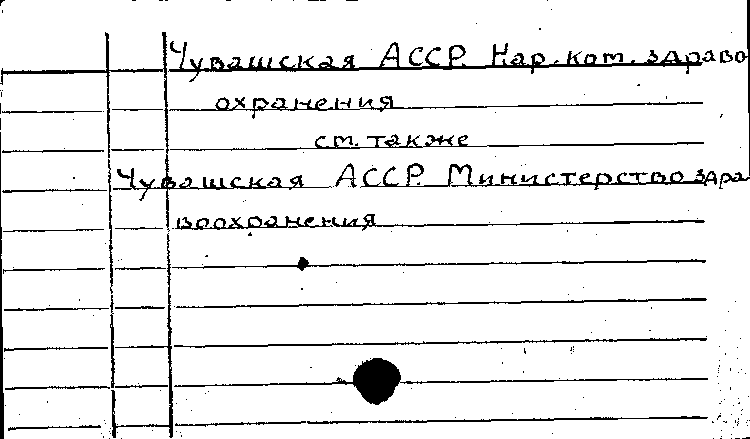 Чувашская АССР. Нар. ком. здраво
охранения
см. также
Чувашская АССР. Министерство здра
воохранения